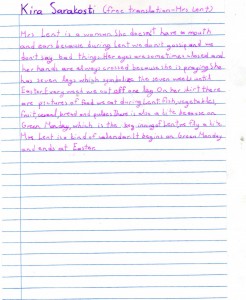 Kira Sarakosti (free translation-Mrs Lent)
Mrs Lent is a woman. She doesn't have a mouth
and ears because during Lent we don't gossip and we
don't say bad things. Her eyes are sometimes closed and
her hands are always crossed because she is praying. She
has seven legs which symbolize the seven weeks until
Easter. Every week we cut off one leg. On her skirt there
are pictures of food we eat during Lent: fish, vegetables,
fruit, bread and pulses. There is also a kite because on
Green Monday, which is the beginning of Lent we fly a kite.
Mrs Lent is a kind of calendar. It begins on Green Monday
and ends at Easter.